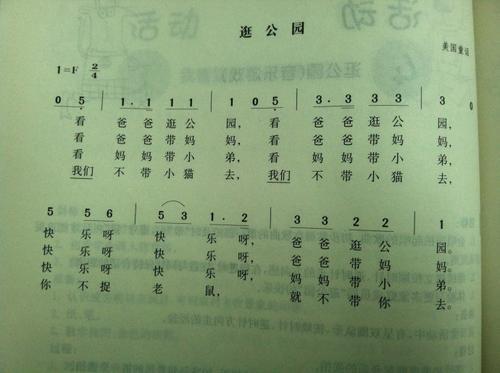 逛公园
美国童谣
1=F 2/4
0 5 | 1.1 1 1 | 1 0 5 | 3.3 3 3 | 3 0
看 爸爸逛公 园, 看 爸爸逛公 园,
看 爸爸带妈 妈, 看 爸爸带妈 妈,
看 妈妈带小 弟, 看 妈妈带小 弟,
我们 不带小猫 去, 我们 不带小猫 去,
5 5 6 | 5 3 1.2 | 3 3 2 2 | 1
快 乐呀 快 乐呀, 爸爸逛公 园。
快 乐呀 快 乐呀, 爸爸带妈 妈。
快 乐呀 快 乐呀, 妈妈带小 弟。
你 不捉 老 鼠, 就不带你 去。